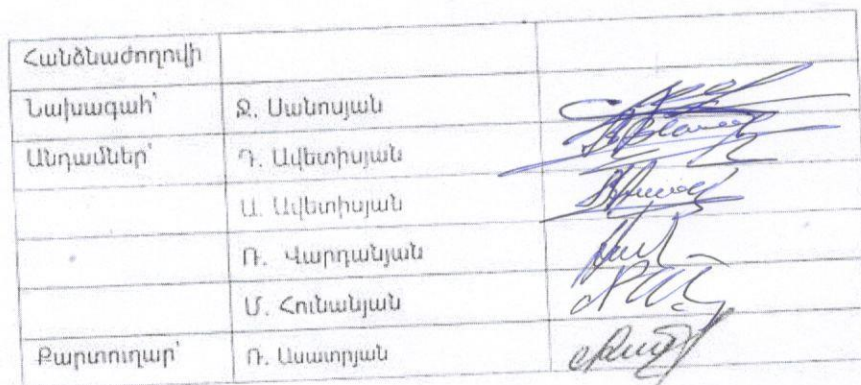 Հանձնաժողովի
Նախագահ՝ Ջ. Սանոսյան
Անդամներ՝ Դ. Ավետիսյան
Ա. Ավետիսյան
Ռ. Վարդանյան
Մ. Հունանյան
Քարտուղար՝ Ռ. Ասատրյան